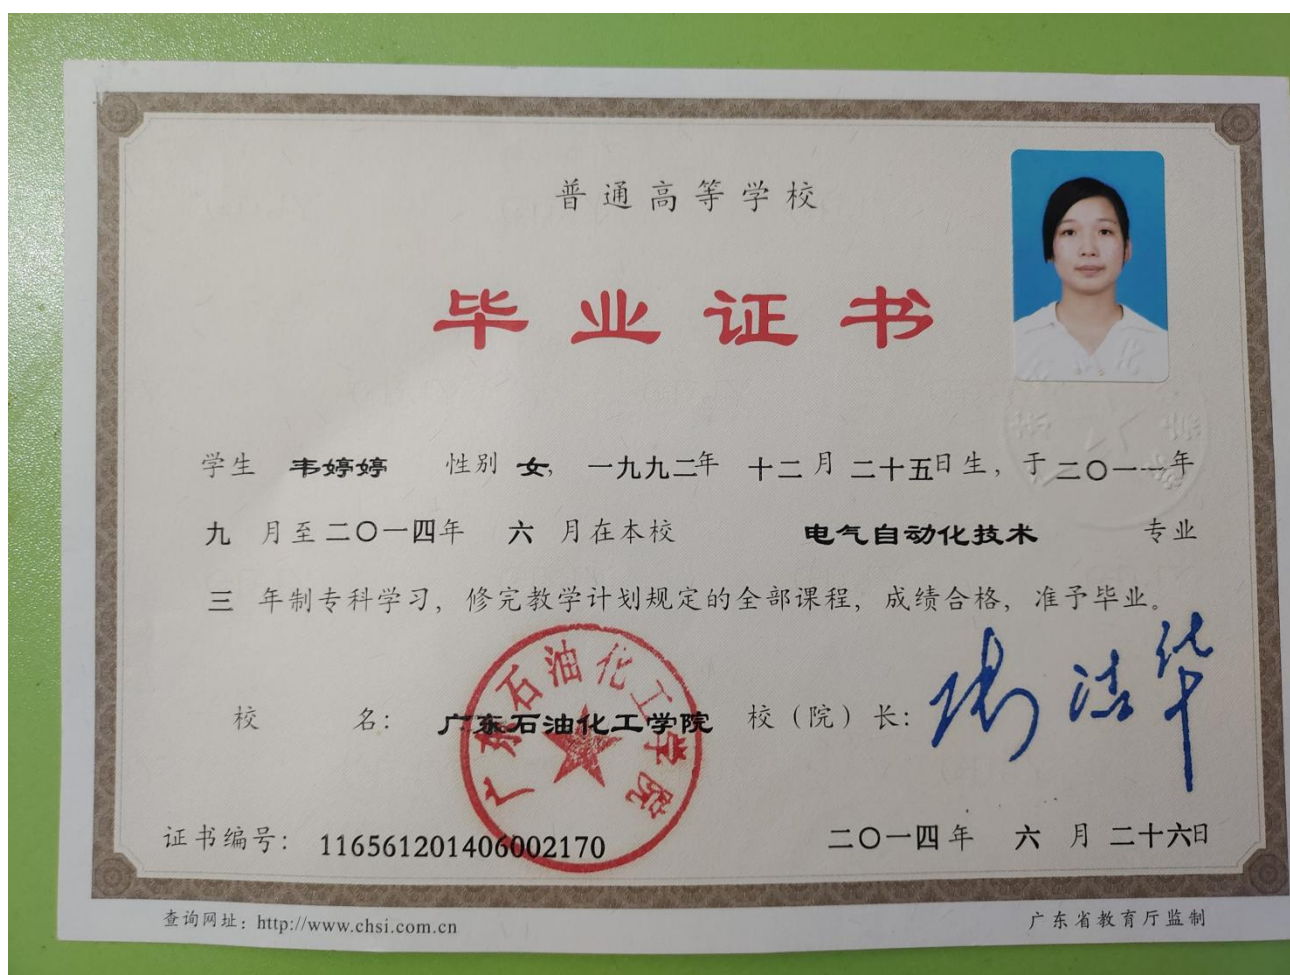 普通高等学校
毕业证书
学生 韦婷婷 性别 女, 一九九二年 十二月 二十五日生，于二〇一一年
九 月至二〇一四年 六 月在本校 电气自动化技术 专业
三 年制专科学习，修完教学计划规定的全部课程，成绩合格，准予毕业。
广东石油化工学院
校 名：广东石油化工学院 校（院）长：
证书编号：116561201406002170 二〇一四年 六 月 二十六日
查询网址：http://www.chsi.com.cn 广东省教育厅监制